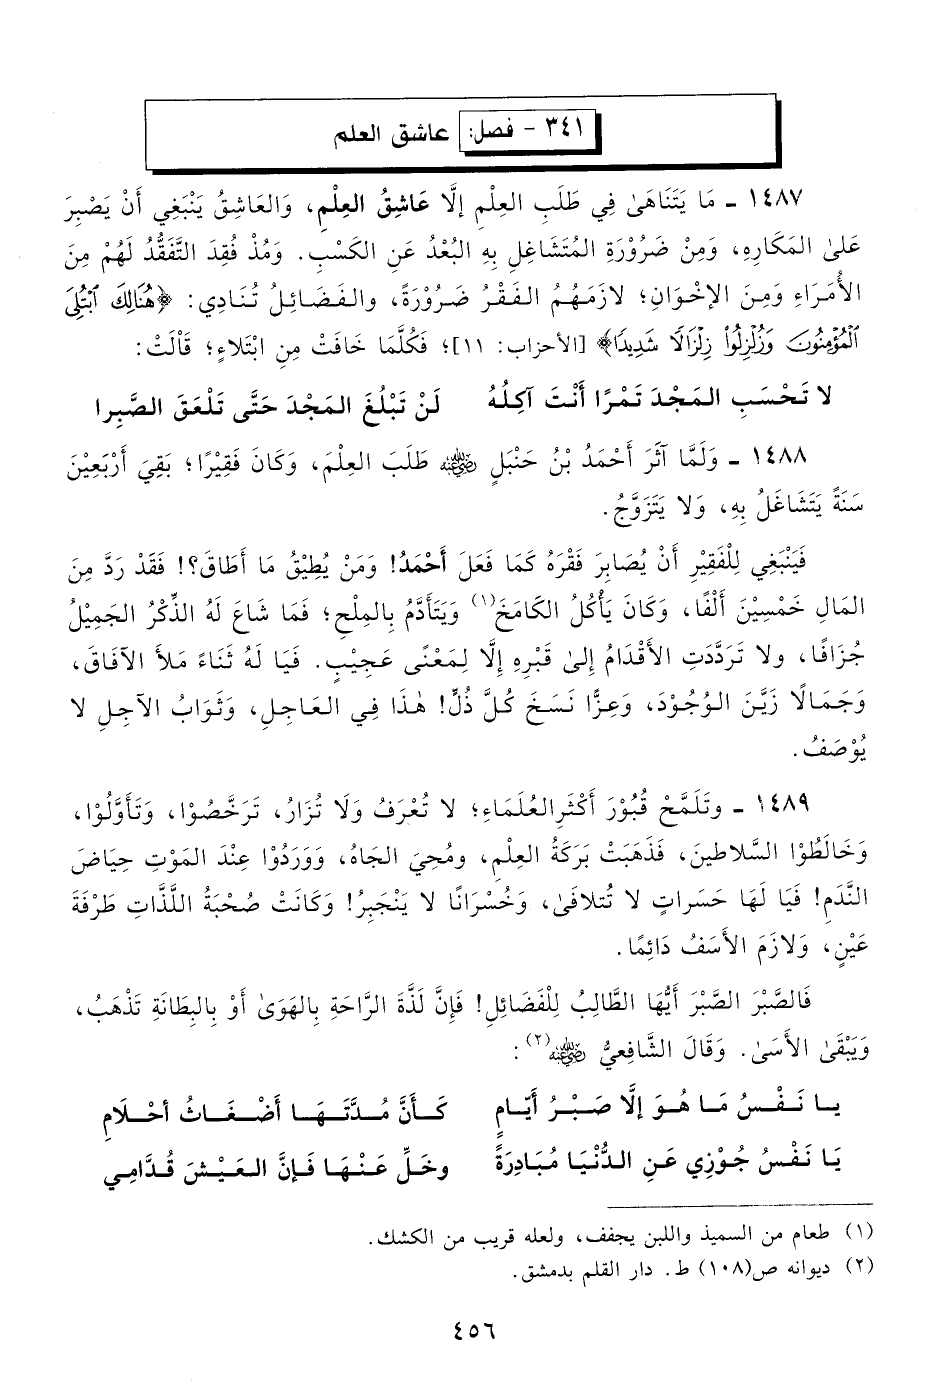 ٣٤١ - فصل: عاشق العلم
١٤٨٧ - مَا يَتَنَاهَىٰ فِي طَلَبِ العِلْمِ إلَّا عَاشِقُ العِلْمِ، وَالعَاشِقُ يَنْبَغِي أَنْ يَصْبِرَ
عَلىٰ المَكَارِهِ، وَمِنْ ضَرُورَةِ المُتَشَاغِلِ بِهِ البُعْدُ عَنِ الكَسْبِ. وَمُذْ فُقِدَ التَّفَقُّدُ لَهُمْ مِنَ
الأُمَرَاءِ وَمِنَ الإخْوَانِ؛ لازَمَهُمُ الفَقْرُ ضَرُورَةً، والفَضَائِلُ تُنَادِي: ﴿هُنَالِكَ ٱبْتُلِىَ
ٱلْمُؤْمِنُونَ وَزُلْزِلُوا۟ زِلْزَالًا شَدِيدًا﴾ [الأحزاب: ١١]؛ فَكُلَّمَا خَافَتْ مِنِ ابْتَلاءٍ؛ قَالَتْ:
لا تَحْسَبِ المَجْدَ تَمْرًا أَنْتَ آكِلُهُ لَنْ تَبْلُغَ المَجْدَ حَتَّى تَلْعَقَ الصَّبِرا
١٤٨٨ - وَلَمَّا آثَرَ أَحْمَدُ بْنُ حَنْبَلٍ رضي الله عنه طَلَبَ العِلْمِ، وَكَانَ فَقِيرًا؛ بَقِيَ أَرْبَعِيْنَ
سَنَةً يَتَشَاغَلُ بِهِ، وَلا يَتَزَوَّجُ.
فَيَنْبَغِي لِلْفَقِيْرِ أَنْ يُصَابِرَ فَقْرَهُ كَمَا فَعَلَ أَحْمَدُ! وَمَنْ يُطِيْقُ مَا أَطَاقَ؟! فَقَدْ رَدَّ مِنَ
المَالِ خَمْسِيْنَ أَلْفًا، وَكَانَ يَأْكُلُ الكَامَخَ(١) وَيَتَأَدَّمُ بِالمِلْحِ؛ فَمَا شَاعَ لَهُ الذِّكْرُ الجَمِيْلُ
جُزَافًا، ولا تَرَدَّدَتِ الأَقْدَامُ إلىٰ قَبْرِهِ إلَّا لِمَعْنًى عَجِيْبٍ. فَيَا لَهُ ثَنَاءً مَلأَ الآفَاقَ،
وَجَمَالًا زَيَّنَ الوُجُوْدَ، وَعِزًّا نَسَخَ كُلَّ ذُلٍّ! هٰذَا فِي العَاجِلِ، وَثَوَابُ الآجِلِ لا
يُوْصَفُ.
١٤٨٩ - وتَلَمَّحْ قُبُوْرَ أَكْثَرِ العُلَمَاءِ؛ لا تُعْرَفُ وَلَا تُزَارُ، تَرَخَّصُوْا، وَتَأَوَّلُوْا،
وَخَالَطُوْا السَّلاطِينَ، فَذَهَبَتْ بَرَكَةُ العِلْمِ، ومُحِيَ الجَاهُ، وَوَرَدُوْا عِنْدَ المَوْتِ حِيَاضَ
النَّدَمِ! فَيَا لَهَا حَسَراتٍ لا تُتَلافىٰ، وَخُسْرَانًا لا يَنْجَبِرُ! وَكَانَتْ صُحْبَةُ اللَّذَّاتِ طَرْفَةَ
عَيْنٍ، وَلازَمَ الأَسَفُ دَائِمًا.
فَالصَّبْرَ الصَّبْرَ أَيُّهَا الطَّالِبُ لِلْفَضَائِلِ! فَإِنَّ لَذَّةَ الرَّاحَةِ بِالهَوَىٰ أَوْ بِالبِطَانَةِ تَذْهَبُ،
وَيَبْقَىٰ الأَسَىٰ. وَقَالَ الشَّافِعِيُّ رضي الله عنه(٢):
يـا نَـفْـسُ مَـا هُـوَ إلَّا صَـبْـرُ أَيَّـامٍ كَـأَنَّ مُـدَّتَـهَـا أَضْـغَـاثُ أَحْـلَامِ
يَـا نَـفْـسُ جُـوْزِي عَـنِ الدُّنْيَا مُبَادِرَةً وخَلِّ عَنْهَا فَإِنَّ العَيْشَ قُدَّامِي
(١) طعام من السميذ واللبن يجفف، ولعله قريب من الكشك.
(٢) ديوانه ص(١٠٨) ط. دار القلم بدمشق.
٤٥٦